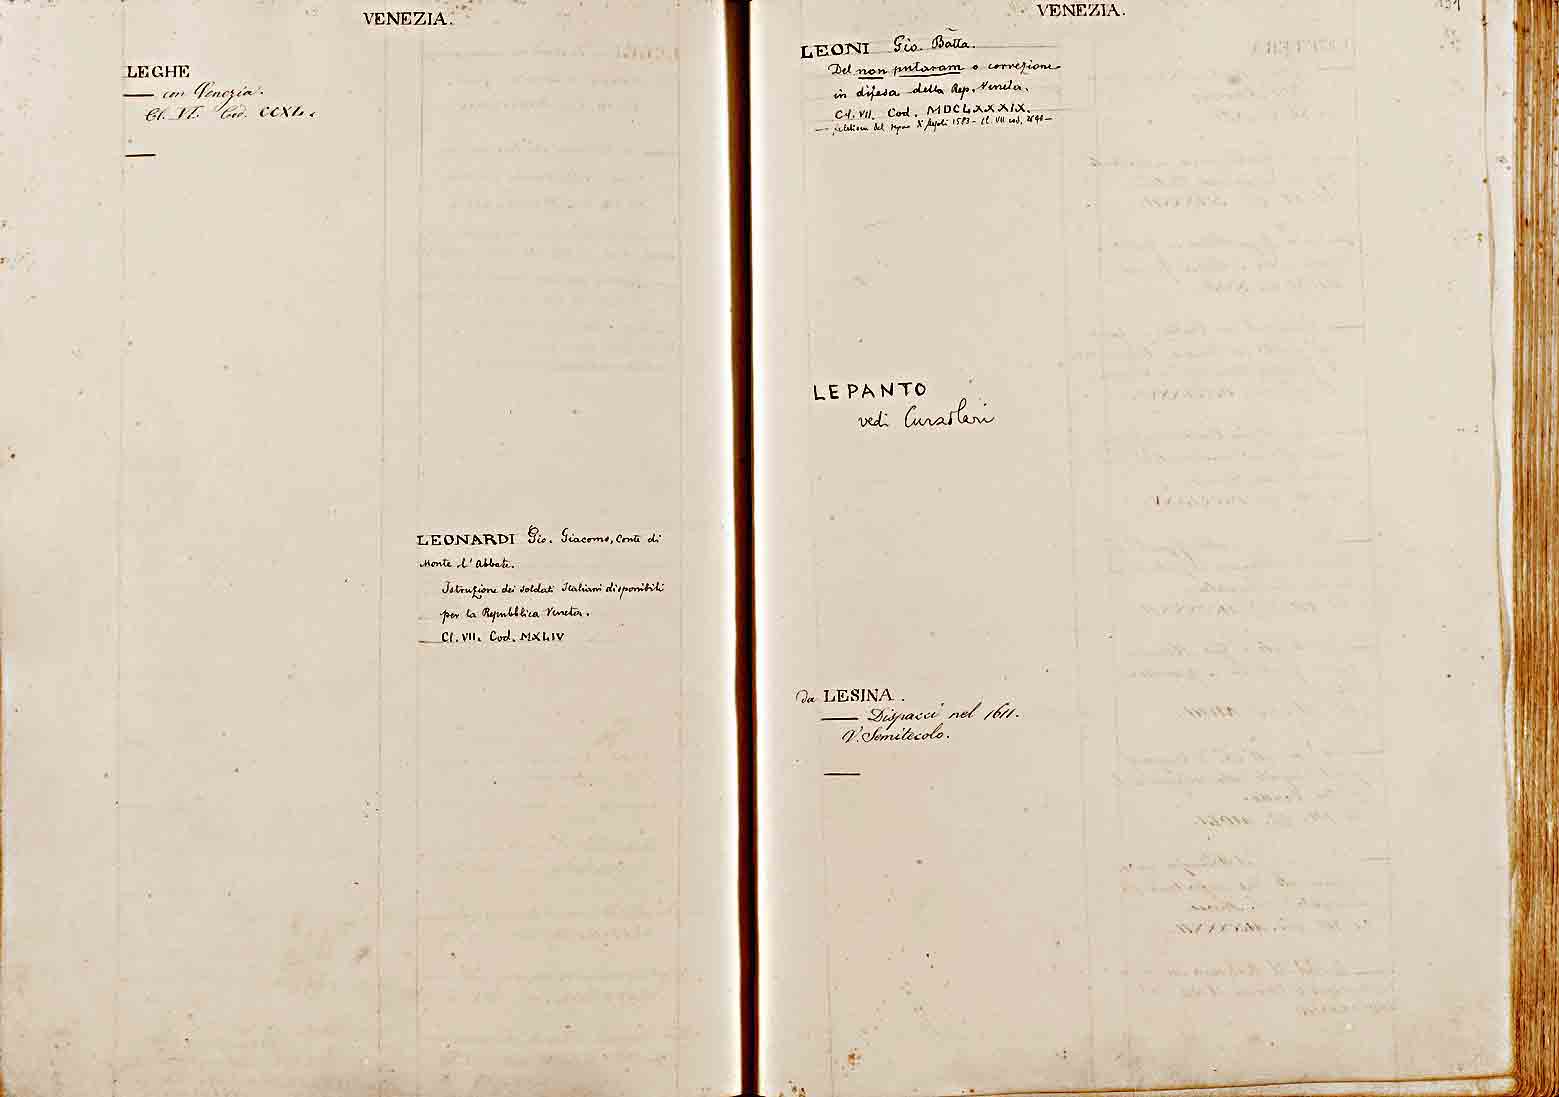 VENEZIA.
LEGHE
— con Venezia.
Cl. VI. Cod. CCXL.
LEONARDI Gio. Giacomo, Conte di
Monte l'Abbate.
Istruzione dei soldati Italiani disponibili
per la Repubblica Veneta.
Cl. VII. Cod. MXLIV
VENEZIA.
151
LEONI Gio. Batta.
Del non putaram o correzione
in difesa della Rep. Veneta.
Cl. VII. Cod. MDCLXXXIX.
— del 1583 - Cl. VII cod.
LEPANTO
vedi Curzolari
da LESINA.
— Dispacci nel 1611.
V. Semitecolo.